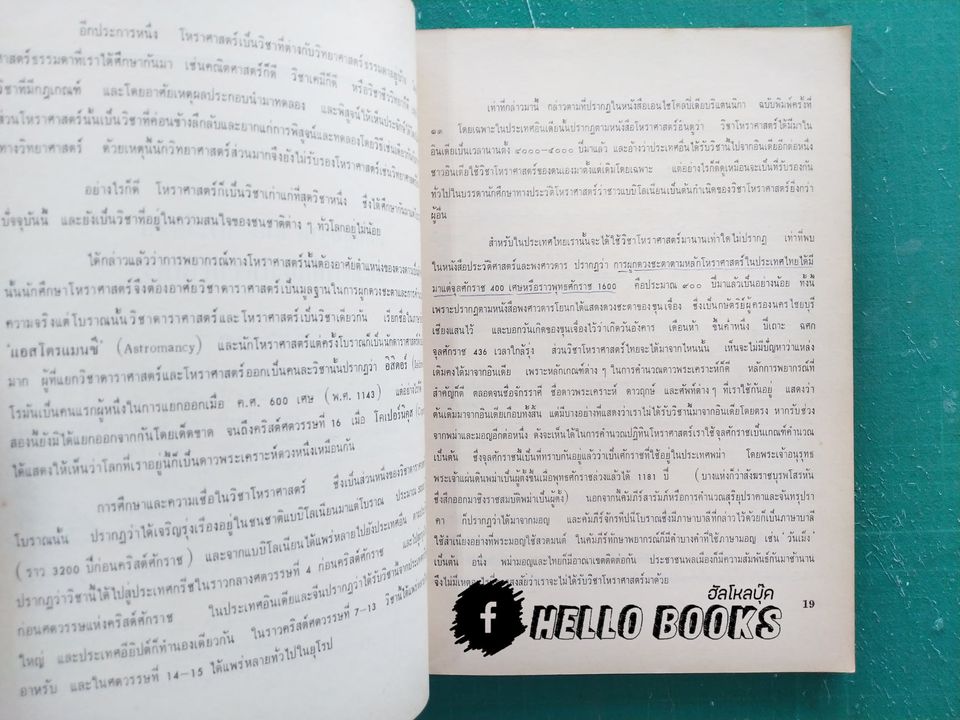 อีกประการหนึ่ง โหราศาสตร์เป็นวิชาที่ต่างกับวิทยาศาสตร์ธรรมดาอยู่บ้าง
ศาสตร์ธรรมดาที่เราได้ศึกษากันมา เช่นคณิตศาสตร์ก็ดี วิชาเคมีก็ดี หรือวิชาชีววิทยาก็ดี
วิชาที่มีกฎเกณฑ์ และโดยอาศัยเหตุผลประกอบนำมาทดลอง และพิสูจน์ให้เห็นประจักษ์ได้
ส่วนโหราศาสตร์นั้นเป็นวิชาที่ค่อนข้างลึกลับและยากแก่การพิสูจน์และทดลองโดยวิธีเช่นเดียวกัน
ทางวิทยาศาสตร์ ด้วยเหตุนี้นักวิทยาศาสตร์ส่วนมากจึงยังไม่รับรองโหราศาสตร์เช่นวิทยาศาสตร์
อย่างไรก็ดี โหราศาสตร์ก็เป็นวิชาเก่าแก่ที่สุดวิชาหนึ่ง ซึ่งได้ศึกษากัน
ปัจจุบันนี้ และยังเป็นวิชาที่อยู่ในความสนใจของชนชาติต่าง ๆ ทั่วโลกอยู่ไม่น้อย
ได้กล่าวแล้วว่าการพยากรณ์ทางโหราศาสตร์นั้นต้องอาศัยตำแหน่งของดวงดาว
นั้นนักศึกษาโหราศาสตร์จึงต้องอาศัยวิชาดาราศาสตร์เป็นมูลฐานในการผูกดวงชะตาและการ
ความจริงแต่โบราณนั้นวิชาดาราศาสตร์และโหราศาสตร์เป็นวิชาเดียวกัน เรียกชื่อใน
"แอสโตรแมนซี" (Astromancy) และนักโหราศาสตร์แต่ครั้งโบราณก็เป็นนักดาราศาสตร์
มาก ผู้ที่แยกวิชาดาราศาสตร์และโหราศาสตร์ออกเป็นคนละวิชานั้นปรากฏว่า อิสิดอร์
โรมันเป็นคนแรกผู้หนึ่งในการแยกออกเมื่อ ค.ศ. 600 เศษ (พ.ศ. 1143) แต่อย่างไรก็ดี
สองนี้ยังมิได้แยกออกจากกันโดยเด็ดขาด จนถึงคริสต์ศตวรรษที่ 16 เมื่อ โคเปอร์นิคุส
ได้แสดงให้เห็นว่าโลกที่เราอยู่นี้ก็เป็นดาวพระเคราะห์ดวงหนึ่งเหมือนกัน
การศึกษาและความเชื่อในวิชาโหราศาสตร์ ซึ่งเป็นส่วนหนึ่งของวิชาดารา
โบราณนั้น ปรากฏว่าได้เจริญรุ่งเรืองอยู่ในชนชาติแบบิโลเนียนมาแต่โบราณ ประมาณ
(ราว 3200 ปีก่อนคริสต์ศักราช) และจากแบบิโลเนียนได้แพร่หลายไปยังประเทศอื่น
ปรากฏว่าวิชานี้ได้ไปสู่ประเทศกรีซในราวกลางศตวรรษที่ 4 ก่อนคริสต์ศักราช
ก่อนศตวรรษแห่งคริสต์ศักราช ในประเทศอินเดียและจีนปรากฏว่าได้รับวิชานี้จากประเทศ
ใหญ่ และประเทศอียิปต์ก็ทำนองเดียวกัน ในราวคริสต์ศตวรรษที่ 7–13 วิชานี้ได้แพร่
อาหรับ และในศตวรรษที่ 14–15 ได้แพร่หลายทั่วไปในยุโรป
เท่าที่กล่าวมานี้ กล่าวตามที่ปรากฏในหนังสือเอนไซโคลปิเดียบริแตนนิกา ฉบับพิมพ์ครั้งที่
๑๑ โดยเฉพาะในประเทศอินเดียนั้นปรากฏตามหนังสือโหราศาสตร์อินดูว่า วิชาโหราศาสตร์ได้มีมาใน
อินเดียเป็นเวลานานตั้ง ๔๐๐๐–๕๐๐๐ ปีมาแล้ว และอ้างว่าประเทศอื่นได้รับวิชานี้ไปจากอินเดียอีกต่อหนึ่ง
ชาวอินเดียใช้วิชาโหราศาสตร์ของตนเองมาตั้งแต่เดิมโดยเฉพาะ แต่อย่างไรก็ดีดูเหมือนจะเป็นที่รับรองกัน
ทั่วไปในบรรดานักศึกษาทางประวัติโหราศาสตร์ว่าชาวแบบิโลเนียนเป็นต้นกำเนิดของวิชาโหราศาสตร์ยิ่งกว่า
ผู้อื่น
สำหรับในประเทศไทยเรานั้นจะได้ใช้วิชาโหราศาสตร์มานานเท่าใดไม่ปรากฏ เท่าที่พบ
ในหนังสือประวัติศาสตร์และพงศาวดาร ปรากฏว่า การผูกดวงชะตาตามหลักโหราศาสตร์ในประเทศไทยได้มี
มาแต่จุลศักราช 400 เศษหรือราวพุทธศักราช 1600 คือประมาณ ๙๐๐ ปีมาแล้วเป็นอย่างน้อย ทั้งนี้
เพราะปรากฏตามหนังสือพงศาวดารโยนกได้แสดงดวงชะตาของขุนเจื่อง ซึ่งเป็นกษัตริย์ผู้ครองนครไชยบุรี
เชียงแสนไว้ และบอกวันเกิดของขุนเจื่องไว้ว่าเกิดวันอังคาร เดือนห้า ขึ้นค่ำหนึ่ง ปีเถาะ ฉศก
จุลศักราช 436 เวลาใกล้รุ่ง ส่วนวิชาโหราศาสตร์ไทยจะได้มาจากไหนนั้น เห็นจะไม่มีปัญหาว่าแหล่ง
เดิมคงได้มาจากอินเดีย เพราะหลักเกณฑ์ต่าง ๆ ในการคำนวณดาวพระเคราะห์ก็ดี หลักการพยากรณ์ที่
สำคัญก็ดี ตลอดจนชื่อจักรราศี ชื่อดาวพระเคราะห์ ดาวฤกษ์ และศัพท์ต่าง ๆ ที่เราใช้กันอยู่ แสดงว่า
ต้นเดิมมาจากอินเดียเกือบทั้งสิ้น แต่มีบางอย่างที่แสดงว่าเราไม่ได้รับวิชานี้มาจากอินเดียโดยตรง หากรับช่วง
จากพม่าและมอญอีกต่อหนึ่ง ดังจะเห็นได้ในการคำนวณปฏิทินโหราศาสตร์เราใช้จุลศักราชเป็นเกณฑ์คำนวณ
เป็นต้น ซึ่งจุลศักราชนี้เป็นที่ทราบกันอยู่แล้วว่าเป็นศักราชที่ใช้อยู่ในประเทศพม่า โดยพระเจ้าอนุรุทธ
พระเจ้าแผ่นดินพม่าเป็นผู้ตั้งขึ้นเมื่อพุทธศักราชล่วงแล้วได้ 1181 ปี (บางแห่งก็ว่าสังฆราชบุรพโสรหัน
ซึ่งสึกออกมาชิงราชสมบัติพม่าเป็นผู้ตั้ง) นอกจากนี้คัมภีร์สารัมภ์หรือการคำนวณสุริยุปราคาและจันทรุปรา
คา ก็ปรากฏว่าได้มาจากมอญ และคัมภีร์จักรทีปนีโบราณซึ่งมีภาษาบาลีที่กล่าวไว้ด้วยก็เป็นภาษาบาลี
ใช้สำเนียงอย่างที่พระมอญใช้สวดมนต์ ในคัมภีร์ทักษาพยากรณ์ก็มีคำบางคำที่ใช้ภาษามอญ เช่น 'วันเม้ง'
เป็นต้น อนึ่ง พม่ามอญและไทยก็มีอาณาเขตติดต่อกัน ประชาชนพลเมืองก็มีความสัมพันธ์กันมาช้านาน
จึงไม่มีเหตุ สงสัยว่าเราจะไม่ได้รับวิชาโหราศาสตร์มาด้วย
ฮัลโหลบุ๊ค
f HELLO BOOKS
19